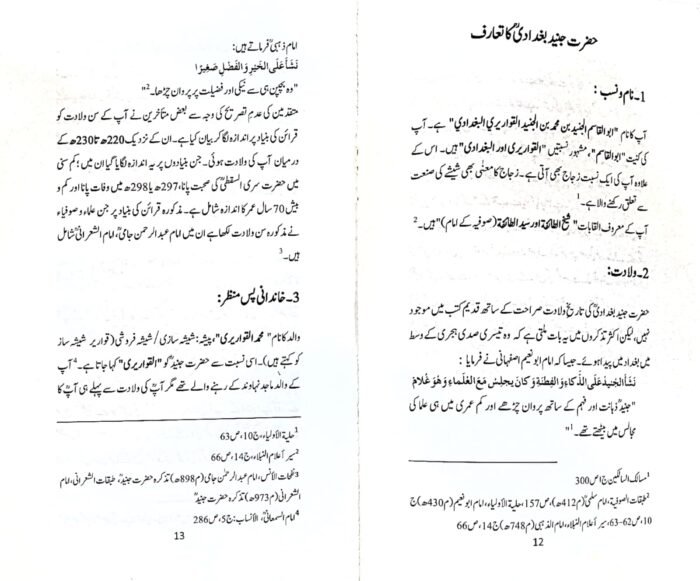 حضرت جنید بغدادیؒ کا تعارف
1۔نام ونسب:
آپ کا نام "ابوالقاسم الجنید بن محمد بن الجنید القواریری البغدادی" ہے۔ آپ
کی کنیت "ابوالقاسم"، مشہور نسبتیں "القواریری اور البغدادی" ہیں۔ اس کے
علاوہ آپ کی ایک نسبت زجاج بھی آتی ہے۔ زجاج کا معنٰی بھی شیشے کی صنعت
سے تعلق رکھنے والا ہے۔1
آپ کے معروف القابات "شیخ الطائفۃ اور سید الطائفۃ (صوفیہ کے امام)" ہیں۔2
2۔ولادت:
حضرت جنید بغدادیؒ کی تاریخ ولادت صراحت کے ساتھ قدیم کتب میں موجود
نہیں، لیکن اکثر تذکروں میں یہ بات ملتی ہے کہ وہ تیسری صدی ہجری کے وسط
میں بغداد میں پیدا ہوئے۔ جیسا کہ امام ابو نعیم اصفہانی نے فرمایا:
نَشَأَ الجُنَيدُ عَلَى الذَّكَاءِ وَ الفِطنَةِ وَ كَانَ يَجلِسُ مَعَ العُلَمَاءِ وَ هُوَ غُلَامٌ
"جنیدؒ ذہانت اور فہم کے ساتھ پروان چڑھے اور کم عمری میں ہی علما کی
مجالس میں بیٹھتے تھے۔"1
1مسالک السالکین ج1ص300
2طبقات الصوفیۃ، امام سلمیؒ (م412ھ)، ص157، حلیۃ الأولیاء، امام ابو نعیم (م430ھ) ج
10، ص62-63، سیر أعلام النبلاء، امام الذہبی (م748ھ) ج14، ص66
12
امام ذہبیؒ فرماتے ہیں:
نَشَأَ عَلَى الْخَيْرِ وَ الْفَضْلِ صَغِيْرًا
"وہ بچپن ہی سے نیکی اور فضیلت پر پروان چڑھا۔"2
متقدمین کی عدمِ تصریح کی وجہ سے بعض متاخرین نے آپ کے سن ولادت کو
قرائن کی بنیاد پر اندازہ لگا کر بیان کیا ہے۔ ان کے نزدیک 220ھ تا 230ھ کے
درمیان آپ کی ولادت ہوئی۔ جن بنیادوں پر یہ اندازہ لگایا گیا ان میں؛ کم سنی
میں حضرت سری السقطیؒ کی صحبت پانا، 297ھ یا 298ھ میں وفات پانا اور کم و
بیش 70 سال عمر کا اندازہ شامل ہے۔ مذکورہ قرائن کی بنیاد پر جن علماء و صوفیاء
نے مذکورہ سن ولادت لکھا ہے ان میں امام عبد الرحمن جامیؒ، امام الشعرانیؒ شامل
ہیں۔3
3۔خاندانی پس منظر:
والد کا نام "محمد القواریری"، پیشہ: شیشہ سازی / شیشہ فروشی (قواریر شیشہ ساز
کو کہتے ہیں)۔ اسی نسبت سے حضرت جنیدؒ کو "القواریری" کہا جاتا ہے۔4 آپ
کے والد ماجد نہاوند کے رہنے والے تھے مگر آپؒ کی ولادت سے پہلے ہی آپؒ کا
1حلیۃ الأولیاء، ج10، ص63
2سیر أعلام النبلاء، ج14، ص66
3نفحات الأنس، امام عبد الرحمٰن جامی (م898ھ) تذکرہ حضرت جنیدؒ، طبقات الشعرانی، امام
الشعرانی (م973ھ) تذکرہ حضرت جنیدؒ
4امام السمعانیؒ، الأنساب: ج5، ص286
13